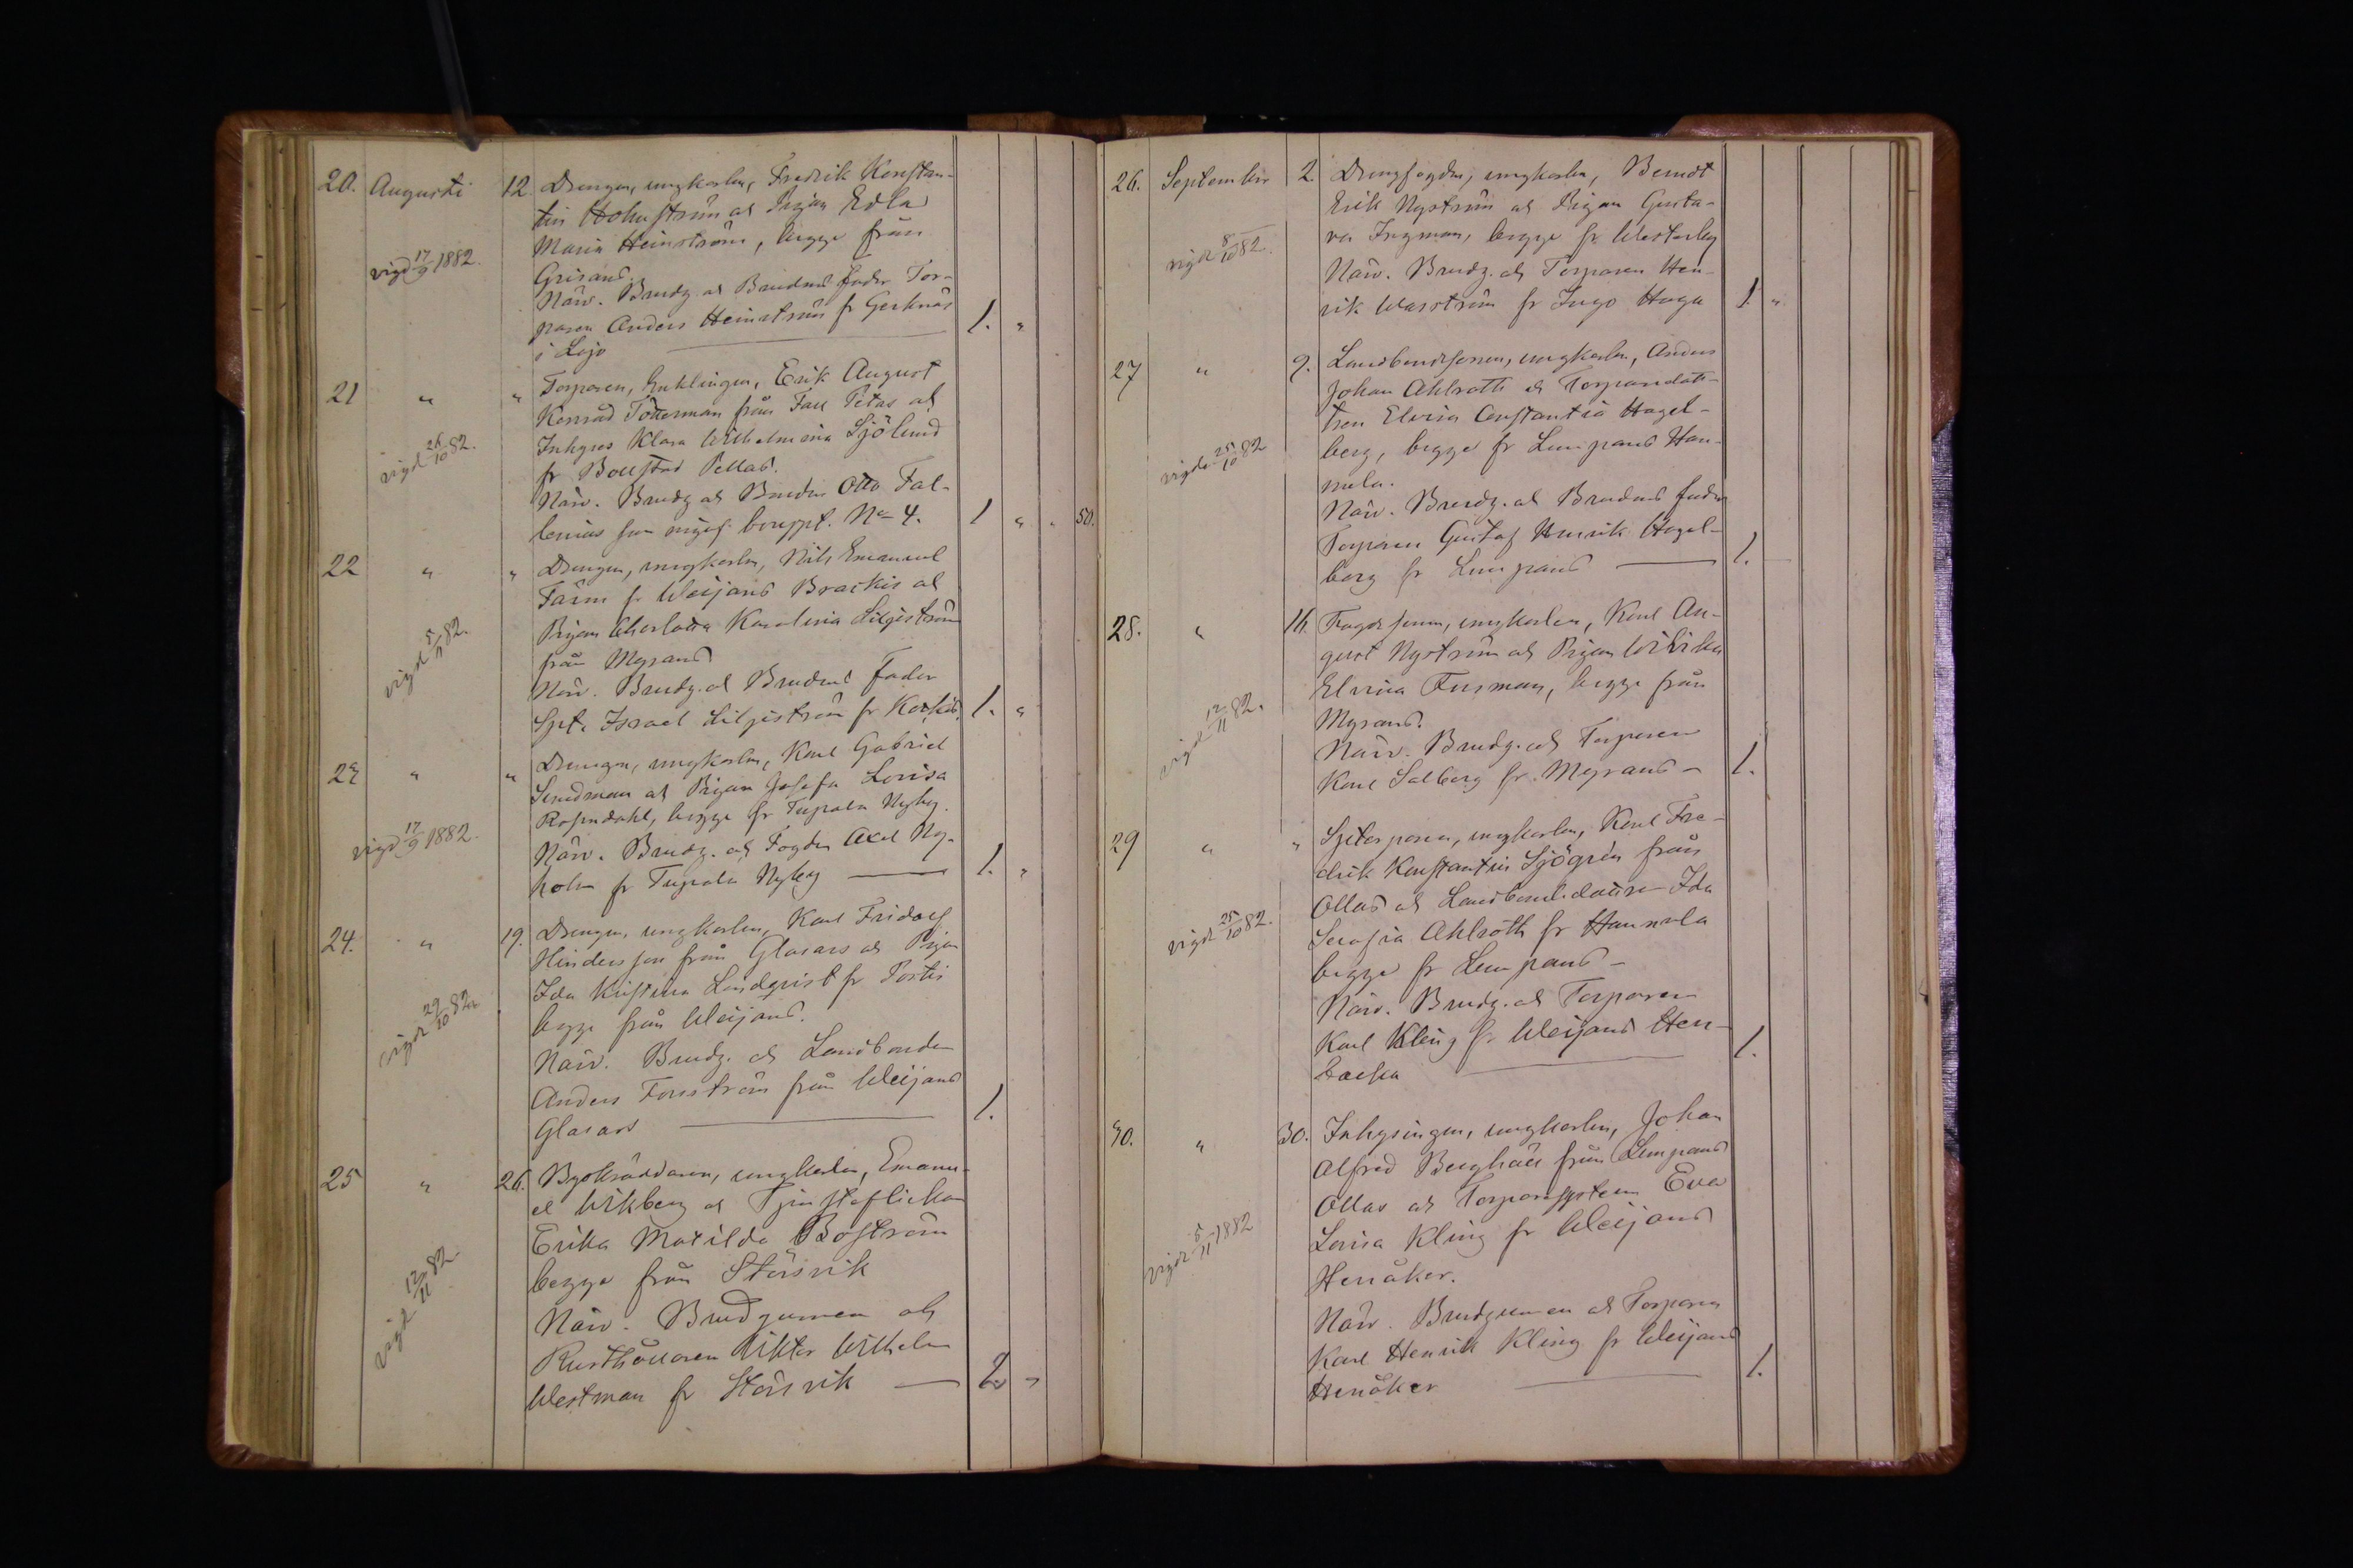 20. Augusti 12 Drengen, ungkarlen, Fredrik Konstan-
tin Holmström och Pigan Edla
Maria Heinström, begge från
vigd 17/9 1882.
Grisans.
Närv. Brudg. och Brudens fader Tor-
paren Anders Heinström fr Gerknäs 1. "
i Lojo
21 " " Torparen, Enklingen, Erik August
Konrad Tönerman från Fall Petas och
Inhyses Klara Wilhelmina Sjölund
vigd 26/10 82.
fr Bollstad Pellas.
Närv. Brudg och Bruden Otto Fal-
lenius som uppg. bouppt. No 4. 1 " " 50.
22 " " Drengen, ungkarlen, Nils Emanuel
Färm fr Weijans Brackis och
Pigan Charlotta Karolina Liljeström
vigd 5/11 82.
från Myrans
Närv. Brudg. och Brudens Fader
Spt. Israel Liljeström fr 1. "
23 " " Drengen, ungkarlen, Karl Gabriel
Lindman och Pigan Josefa Lovisa
Rosendahl, begge fr Tupala Nyby.
vigd 17/9 1882.
Närv. Brudg. och Fogden Axel Ny-
holm fr Tupala Nyby 1. "
24. " 19. Drengen, ungkarlen, Karl Fridolf
Hindersson från Glasars och Pigan
Ida Kristina Lindqvist fr Portis
vigd 29/10 82
begge från Weijans.
Närv. Brudg. och Landbonden
Anders Forsström från Weijans
Glasars 1.
25 " 26. Byskräddaren, ungkarlen, Emanu-
el Wikberg och Tjensteflickan
Erika Matilda Boström
vigd 12/11 82
begge från Störsvik
Närv. Brudgummen och
Rusthållaren Viktor Wilhelm
Westman fr Störsvik 2 "
26. September 2. Drengfogden, ungkarlen, Berndt
Erik Nyström och Pigan Gusta-
va Ingman, begge fr Westerby
vigd 8/10 82.
Närv. Brudg. och Torparen Hen-
rik Wasström fr Ingo Haga 1. "
27 " 9. Landbondesonen, ungkarlen, Anders
Johan Ahlroth och Torparedott-
tren Elvira Constantia Hagel-
berg, begge fr Lempans Han-
nula.
vigde 25/10 82
Närv. Brudg. och Brudens fader
Torparen Gustaf Henrik Hagel-
berg fr Lempans 1.
28. " 16. Fogdesonen, ungkarlen, Karl Au-
gust Nyström och Pigan Wilhelmina
Elvira Forsman, begge från
Myrans.
vigd 12/11 82.
Närv. Brudg. och Torparen
Karl Salberg fr. Myrans 1.
29 " " Spetorparen, ungkarlen, Karl Fre-
drik Konstantin Sjögrén från
Ollas och Landbondedottren Ida
Serafia Ahlroth fr Hannula
vigd 25/10 82.
begge fr Lempans
Närv. Brudg. och Torparen
Karl Kling fr Weijans Hen-
backa 1.
30. " 30. Inhysingen, ungkarlen, Johan
Alfred Berghäll från Lempans
Ollas och Torparesystern Eva
Lovisa Kling fr Weijans
vigd 5/11 1882
Henåker.
Närv. Brudgummen och Torparen
Karl Henrik Kling fr Weijans
Henåker 1.